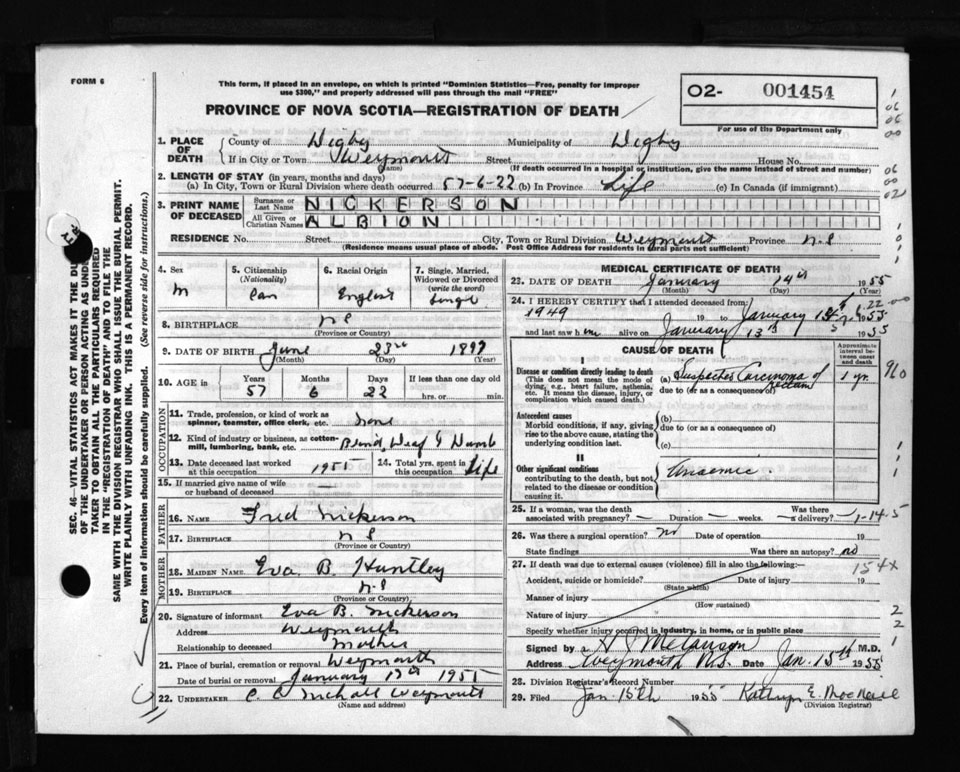 FORM 6
This form, if placed in an envelope, on which is printed "Dominion Statistics—Free, penalty for improper
use $300," and properly addressed will pass through the mail "FREE"
PROVINCE OF NOVA SCOTIA—REGISTRATION OF DEATH
O2- 001454
For use of the Department only
1. PLACE OF DEATH
County of Digby Municipality of Digby
If in City or Town Weymouth Street House No.
(Name) (If death occurred in a hospital or institution, give the name instead of street and number)
2. LENGTH OF STAY (in years, months and days)
(a) In City, Town or Rural Division where death occurred 57-6-22 (b) In Province Life (c) In Canada (if immigrant)
3. PRINT NAME OF DECEASED
Surname or Last Name NICKERSON
All Given or Christian Names ALBION
RESIDENCE No. Street City, Town or Rural Division Weymouth Province N.S
(Residence means usual place of abode. Post Office Address for residents in rural parts not sufficient)
4. Sex M
5. Citizenship (Nationality) Can
6. Racial Origin English
7. Single, Married, Widowed or Divorced (write the word) Single
8. BIRTHPLACE N S
(Province or Country)
9. DATE OF BIRTH June 23rd 1897
(Month) (Day) (Year)
10. AGE in Years Months Days If less than one day old
57 6 22 hrs. or min.
OCCUPATION
11. Trade, profession, or kind of work as spinner, teamster, office clerk, etc. None
12. Kind of industry or business, as cotton-mill, lumbering, bank, etc. Blind, Deaf & Dumb
13. Date deceased last worked at this occupation 1955
14. Total yrs. spent in this occupation Life
15. If married give name of wife or husband of deceased —
FATHER
16. NAME Fred Nickerson
17. BIRTHPLACE N S
(Province or Country)
MOTHER
18. MAIDEN NAME Eva B. Huntley
19. BIRTHPLACE N.S
(Province or Country)
20. Signature of informant Eva B. Nickerson
Address Weymouth
Relationship to deceased Mother
21. Place of burial, cremation or removal Weymouth
Date of burial or removal January 17th 1955
22. UNDERTAKER C. C. Nichall Weymouth
(Name and address)
MEDICAL CERTIFICATE OF DEATH
23. DATE OF DEATH January 14th 1955
(Month) (Day) (Year)
24. I HEREBY CERTIFY that I attended deceased from:
1949 19 to January 1955
and last saw him alive on January 13th 1955
CAUSE OF DEATH
Approximate interval between onset and death
I
Disease or condition directly leading to death
(This does not mean the mode of dying, e.g., heart failure, asthenia, etc. It means the disease, injury, or complication which caused death.)
(a) Suspected Carcinoma of Rectum 1 yr.
due to (or as a consequence of)
Antecedent causes
Morbid conditions, if any, giving rise to the above cause, stating the underlying condition last.
(b)
due to (or as a consequence of)
(c)
II
Other significant conditions
contributing to the death, but not related to the disease or condition causing it.
Anaemic.
25. If a woman, was the death associated with pregnancy? — Duration — weeks. Was there a delivery? —
1-14-5
26. Was there a surgical operation? No Date of operation 19
State findings Was there an autopsy? no
27. If death was due to external causes (violence) fill in also the following:—
154x
Accident, suicide or homicide? Date of injury 19
(State which)
Manner of injury
(How sustained)
Nature of injury
Specify whether injury occurred in industry, in home, or in public place
Signed by Melanson M.D.
Address Weymouth N.S. Date Jan. 15th 1955
28. Division Registrar's Record Number
29. Filed Jan. 15th 1955 Kathryn E. MacNeill
(Division Registrar)
SEC. 46—VITAL STATISTICS ACT MAKES IT THE DUTY
OF THE UNDERTAKER OR PERSON ACTING AS UNDER-
TAKER TO OBTAIN ALL THE PARTICULARS REQUIRED
IN THE "REGISTRATION OF DEATH" AND TO FILE THE
SAME WITH THE DIVISION REGISTRAR WHO SHALL ISSUE THE BURIAL PERMIT.
WRITE PLAINLY WITH UNFADING INK. THIS IS A PERMANENT RECORD.
Every item of information should be carefully supplied. (See reverse side for instructions.)